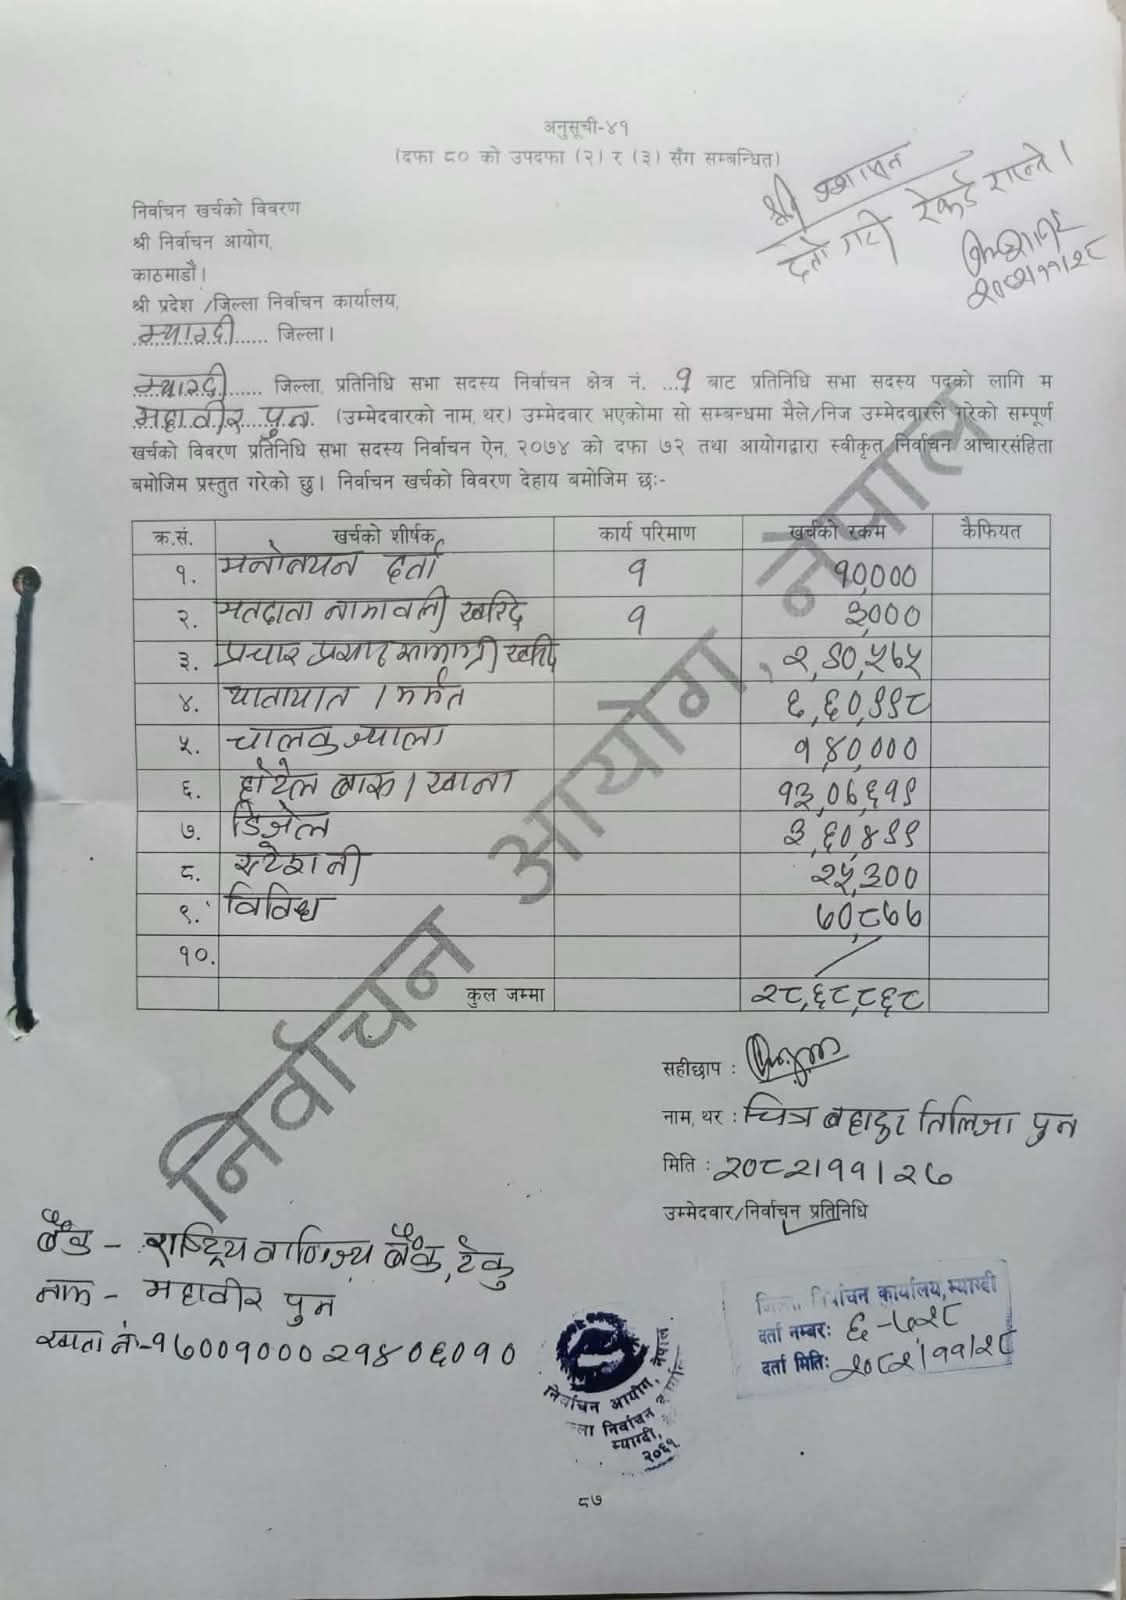 अनुसूची-४१
(दफा ८० को उपदफा (२) र (३) सँग सम्बन्धित)
श्री प्रशासन
दर्ता गरी रेकर्ड राख्ने।
२०८२।११।२८
निर्वाचन खर्चको विवरण
श्री निर्वाचन आयोग,
काठमाडौं।
श्री प्रदेश /जिल्ला निर्वाचन कार्यालय,
म्याग्दी जिल्ला।
म्याग्दी जिल्ला, प्रतिनिधि सभा सदस्य निर्वाचन क्षेत्र नं. १ बाट प्रतिनिधि सभा सदस्य पदको लागि म
महावीर पुन (उम्मेदवारको नाम, थर) उम्मेदवार भएकोमा सो सम्बन्धमा मैले/निज उम्मेदवारले गरेको सम्पूर्ण
खर्चको विवरण प्रतिनिधि सभा सदस्य निर्वाचन ऐन, २०७४ को दफा ७२ तथा आयोगद्वारा स्वीकृत निर्वाचन आचारसंहिता
बमोजिम प्रस्तुत गरेको छु। निर्वाचन खर्चको विवरण देहाय बमोजिम छः-
क्र.सं. खर्चको शीर्षक कार्य परिमाण खर्चको रकम कैफियत
१. मनोनयन दर्ता १ १०,०००
२. मतदाता नामावली खरिद १ ३,०००
३. प्रचार प्रसार सामाग्री खरिद २,९०,५७५
४. यातायात / मर्मत ६,६०,९९८
५. चालक ज्याला १४०,०००
६. होटेल बास / खाना १३,०७,६१९
७. डिजेल ३,६०,४९९
८. स्टेशनरी २५,३००
९. विविध ७०,८७७
१०.
कुल जम्मा २८,६८,८६८
सहीछाप :
नाम, थर : चित्र बहादुर तिलिजा पुन
मिति : २०८२।११।२७
उम्मेदवार/निर्वाचन प्रतिनिधि
बैंक - राष्ट्रिय वाणिज्य बैंक, टेकु
नाम - महावीर पुन
खाता नं-१७००१०००२१४०६०१०
जिल्ला निर्वाचन कार्यालय, म्याग्दी
दर्ता नम्बर: ६-७२८
दर्ता मिति: २०८२।११।२८
निर्वाचन आयोग, नेपाल
जिल्ला निर्वाचन कार्यालय
म्याग्दी,
२०६१
८७
निर्वाचन आयोग, नेपाल